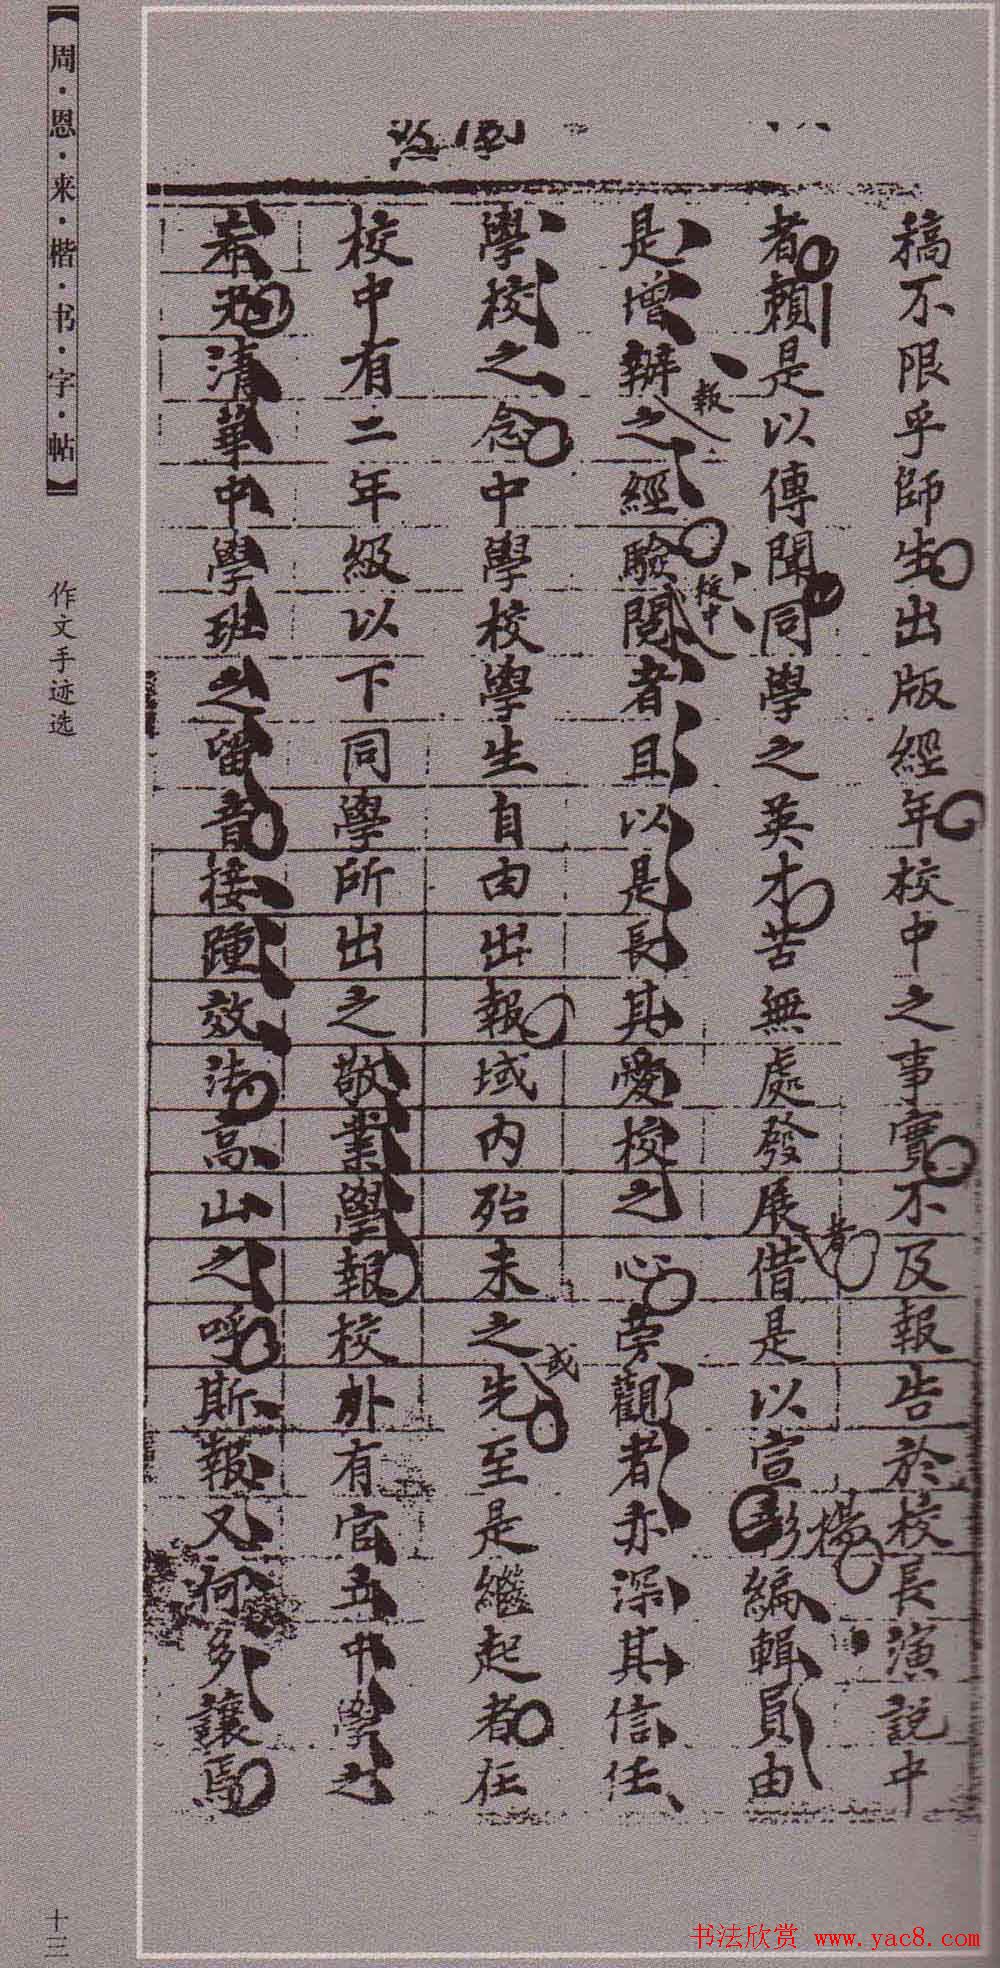 稿不限乎師生出版經年校中之事實不及報告於校長演說中
者賴是以傳聞同學之英才苦無處發展借是以宣彰編輯員由
者
揚
是增辦之經驗閱者且以是長其愛校之心旁觀者亦深其信任
報
校中
學校之念中學校學生自由出報域内殆未之先至是繼起者在
或
校中有二年級以下同學所出之敬業學報校外有官立中學之
希光清華中學班之留音接踵效法高山之呼斯報又何多讓焉
【周·恩·来·楷·书·字·帖】
作文手迹选
十三
书法欣赏 www.yac8.com